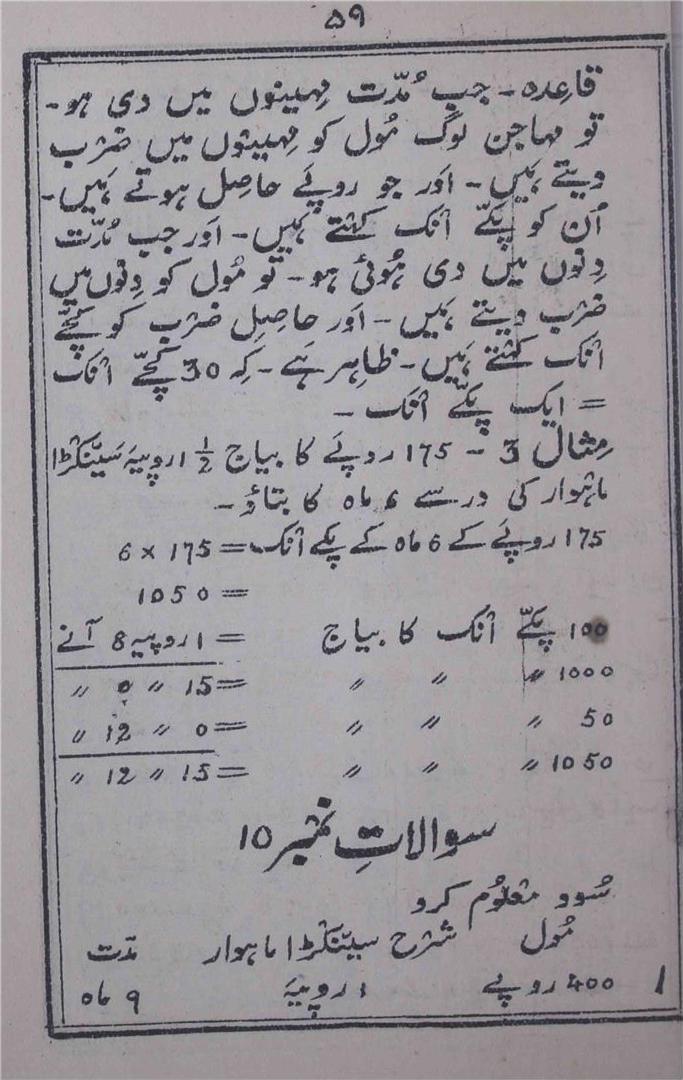 ۵۹
قاعِدہ - جب مُدّت مہینوں میں دی ہو -
تو مہاجن لوگ مُول کو مہینوں میں ضرب
دیتے ہَیں - اَور جو روپَے حاصِل ہوتے ہَیں -
اُن کو پکّے آنک کہتے ہَیں - اَور جب مُدّت
دِنوں میں دی ہُوئی ہو - تو مُول کو دِنوں میں
ضرب دیتے ہَیں - اَور حاصِلِ ضرب کو کچّے
آنک کہتے ہَیں - ظاہِر ہَے - کہ 30 کچّے آنک
= ایک پکّے آنک -
مِثال 3 - 175 روپَے کا بیاج 1½ روپیَہ سَینکڑا
ماہوار کی در سے 6 ماہ کا بتاؤ -
175 روپَے کے 6 ماہ کے پکے آنک = 175 × 6
= 1050
100 پکّے آنک کا بیاج = 1 روپیہ 8 آنے
1000 〃 〃 〃 = 15 〃 0 〃
50 〃 〃 〃 = 0 〃 12 〃
1050 〃 〃 〃 = 15 〃 12 〃
سوالاتِ نمبر 10
سُود معلُوم کرو
مُول شرح سینکڑا ماہوار مدّت
1 400 روپے 1 روپیَہ 9 ماہ